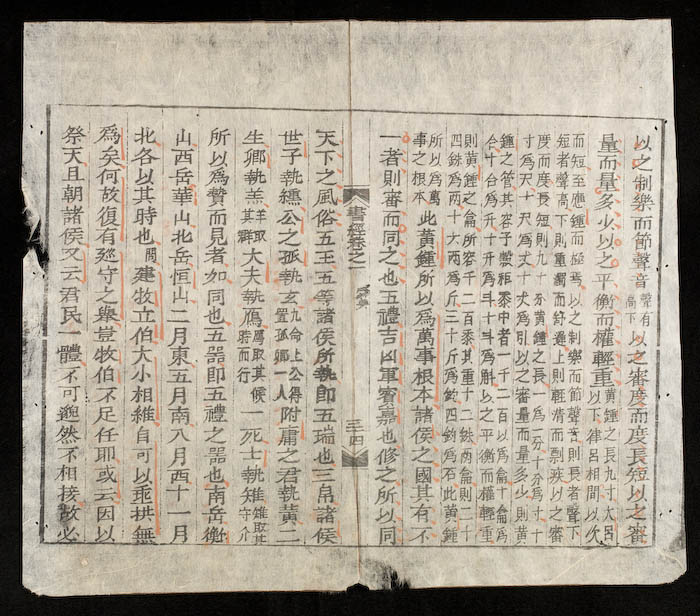 以之制樂而節聲音聲有高下以之審度而度長短以之審
量而量多少以之平衡而權輕重黃鍾之長九寸大呂以下律呂相間以次
而短至應鍾而極焉以之制樂而節聲音則長者聲下
短者聲高下則重濁而舒遲上則輕清而剽疾以之審
度而度長短則九十分黃鍾之長一爲一分十分爲
寸十寸爲尺十尺爲丈十丈爲引以之審量而量多少則黃
鍾之管其容子糓秬黍中者一千二百以爲龠十龠爲
合十合爲升十升爲斗十斗爲斛以之平衡而權輕重
則黃鍾之龠所容千二百黍其重十二銖兩龠則二十
四銖爲兩十六兩爲斤三十斤爲鈞四鈞爲石此黃鍾
所以爲萬事之根本此黃鍾所以爲萬事根本諸侯之國其有不
一者則審而同之也五禮吉凶軍賓嘉也修之所以同
書經卷之一 舜典 三四
天下之風俗五玉五等諸侯所執卽五瑞也三帛諸侯
世子執纁公之孤執玄九命上公得置孤卿一人附庸之君執黃二
生卿執羔羊取其群大夫執鴈鴈取其候時而行一死士執雉雉取其守介
所以爲贄而見者如同也五器卽五禮之器也南岳衡
山西岳華山北岳恒山二月東五月南八月西十一月
北各以其時也問建牧立伯大小相維自可以垂拱無
爲矣何故復有廵守之擧豈牧伯不足任耶或云因以
祭天且朝諸侯又云君民一體不可邈然不相接故必